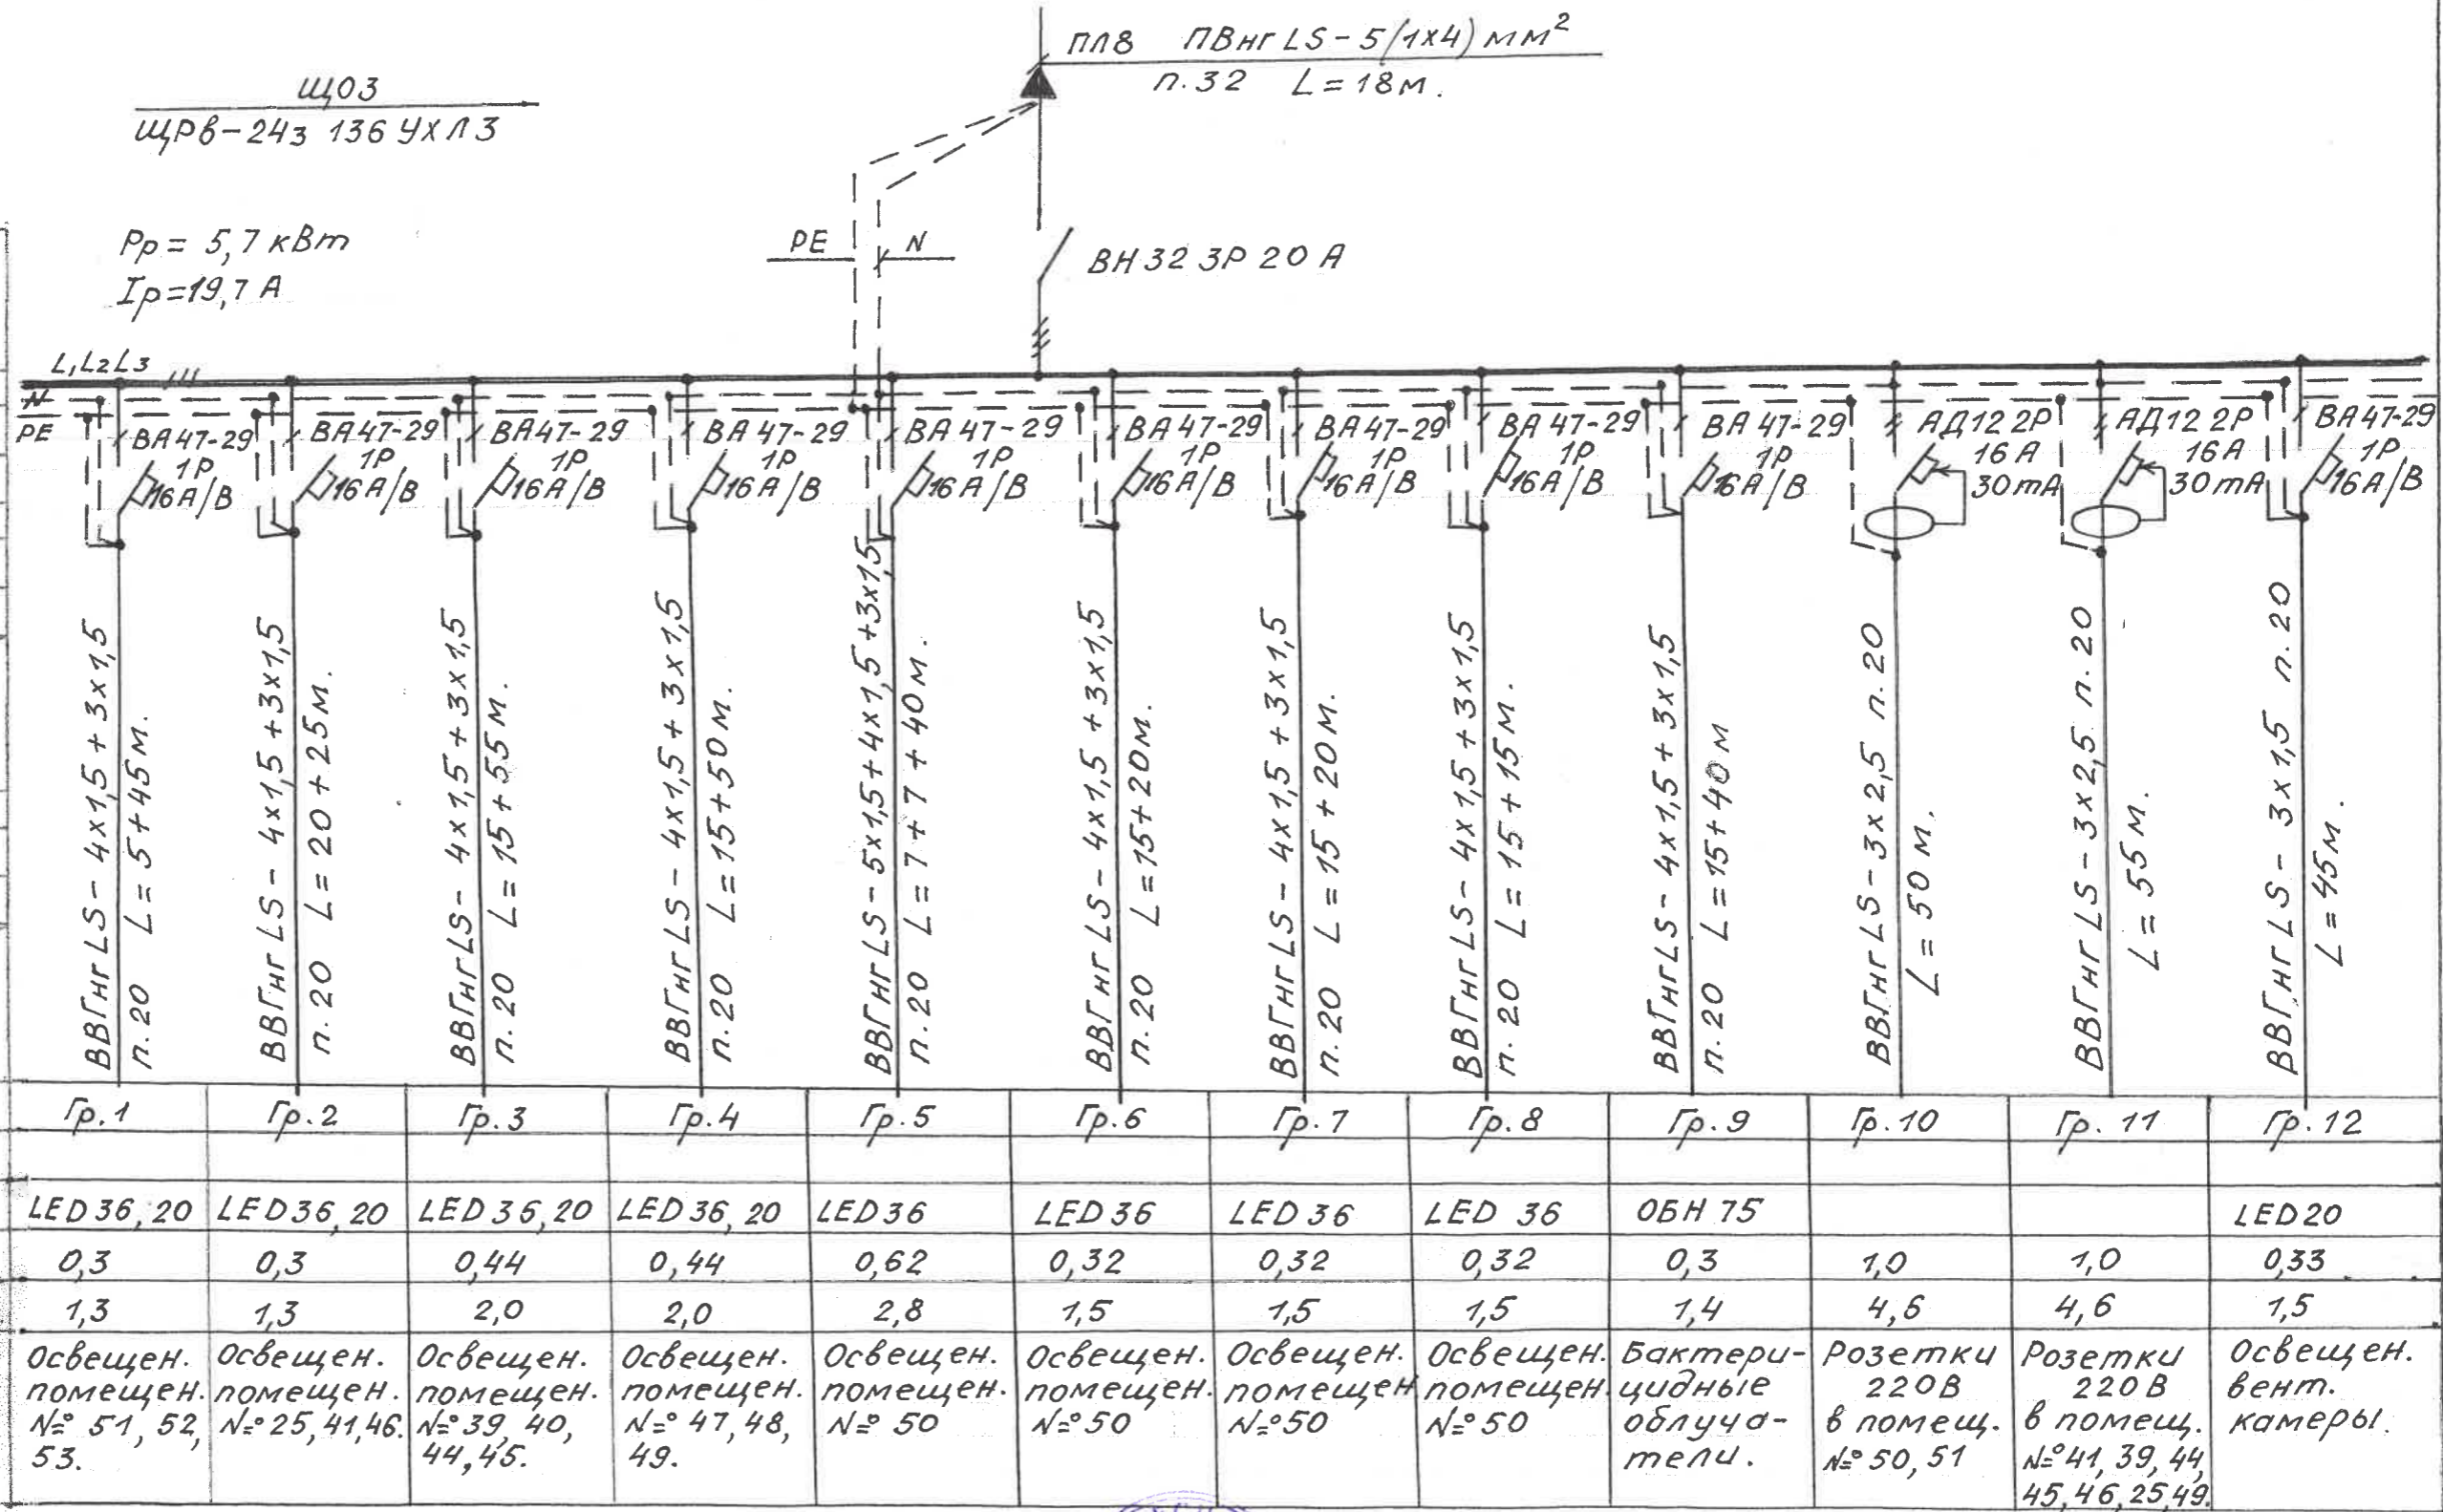 ЩО3
ЩРв-24з 136 УХЛ3
Рр = 5,7 кВт
Iр=19,7 А
ПЛ8 ПВнг LS-5(1x4) мм²
п.32 L=18м.
PE
N
ВН32 3Р 20 А
L1L2L3
N
PE
ВА47-29
1Р
16А/В
ВА47-29
1Р
16А/В
ВА47-29
1Р
16А/В
ВА47-29
1Р
16А/В
ВА47-29
1Р
16А/В
ВА47-29
1Р
16А/В
ВА47-29
1Р
16А/В
ВА47-29
1Р
16А/В
ВА47-29
1Р
16А/В
АД12 2Р
16А
30mA
АД12 2Р
16А
30mA
ВА47-29
1Р
16А/В
ВВГнгLS-4x1,5+3x1,5
п.20 L=5+45м.
ВВГнгLS-4x1,5+3x1,5
п.20 L=20+25м.
ВВГнгLS-4x1,5+3x1,5
п.20 L=15+55м.
ВВГнгLS-4x1,5+3x1,5
п.20 L=15+50м.
ВВГнгLS-5x1,5+4x1,5+3x1,5
п.20 L=7+7+40м.
ВВГнгLS-4x1,5+3x1,5
п.20 L=15+20м.
ВВГнгLS-4x1,5+3x1,5
п.20 L=15+20м.
ВВГнгLS-4x1,5+3x1,5
п.20 L=15+15м.
ВВГнгLS-4x1,5+3x1,5
п.20 L=15+40м
ВВГнгLS-3x2,5 п.20
L=50м.
ВВГнгLS-3x2,5 п.20
L=55м.
ВВГнгLS-3x1,5 п.20
L=45м.
Гр.1 Гр.2 Гр.3 Гр.4 Гр.5 Гр.6 Гр.7 Гр.8 Гр.9 Гр.10 Гр.11 Гр.12
LED36,20 LED36,20 LED36,20 LED36,20 LED36 LED36 LED36 LED 36 ОБН 75 LED20
0,3 0,3 0,44 0,44 0,62 0,32 0,32 0,32 0,3 1,0 1,0 0,33
1,3 1,3 2,0 2,0 2,8 1,5 1,5 1,5 1,4 4,6 4,6 1,5
Освещен.
помещен.
№ 51, 52,
53.
Освещен.
помещен.
№ 25, 41, 46.
Освещен.
помещен.
№ 39, 40,
44, 45.
Освещен.
помещен.
№ 47, 48,
49.
Освещен.
помещен.
№ 50
Освещен.
помещен.
№ 50
Освещен.
помещен
№ 50
Освещен.
помещен
№ 50
Бактери-
цидные
облуча-
тели.
Розетки
220В
в помещ.
№ 50, 51
Розетки
220В
в помещ.
№ 41, 39, 44,
45, 46, 25, 49.
Освещен.
вент.
камеры.